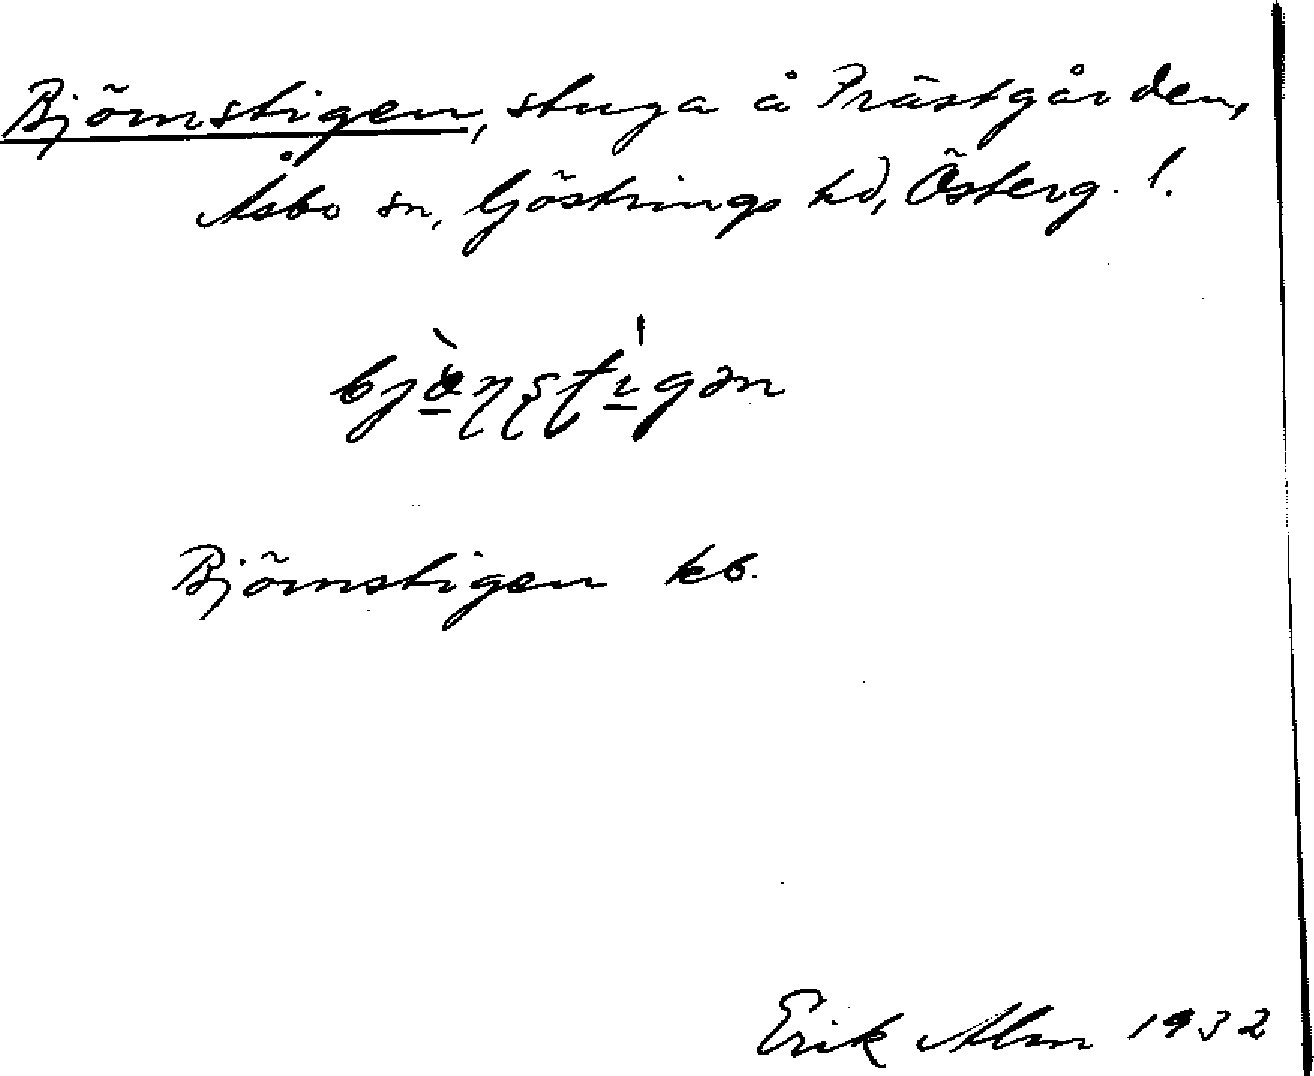 Björnstigen, stuga å Prästgården,
Åsbo sn, Göstrings hd, Österg. l.
Björnstigen kb.
Erik Alm 1932